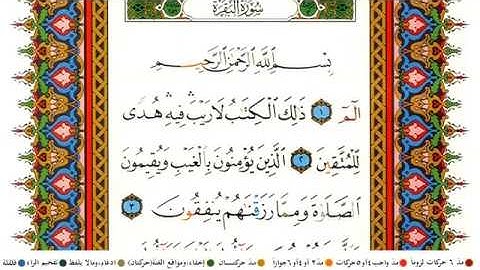 سُورَةُ البَقَرَةِ
بِسْمِ ٱللَّهِ ٱلرَّحْمَٰنِ ٱلرَّحِيمِ
الٓمٓ ١ ذَٰلِكَ ٱلْكِتَٰبُ لَا رَيْبَ ۛ فِيهِ ۛ هُدًى
لِّلْمُتَّقِينَ ٢ ٱلَّذِينَ يُؤْمِنُونَ بِٱلْغَيْبِ وَيُقِيمُونَ
ٱلصَّلَوٰةَ وَمِمَّا رَزَقْنَٰهُمْ يُنفِقُونَ ٣
مدّ ٦ حركات لزوماً مدّ واجب ٤ أو ٥ حركات مدّ ٢ أو ٤ أو ٦ جوازاً مدّ حركتان إخفاء، ومواقع الغنة (حركتان) ادغام، وما لا يلفظ تفخيم الراء قلقلة